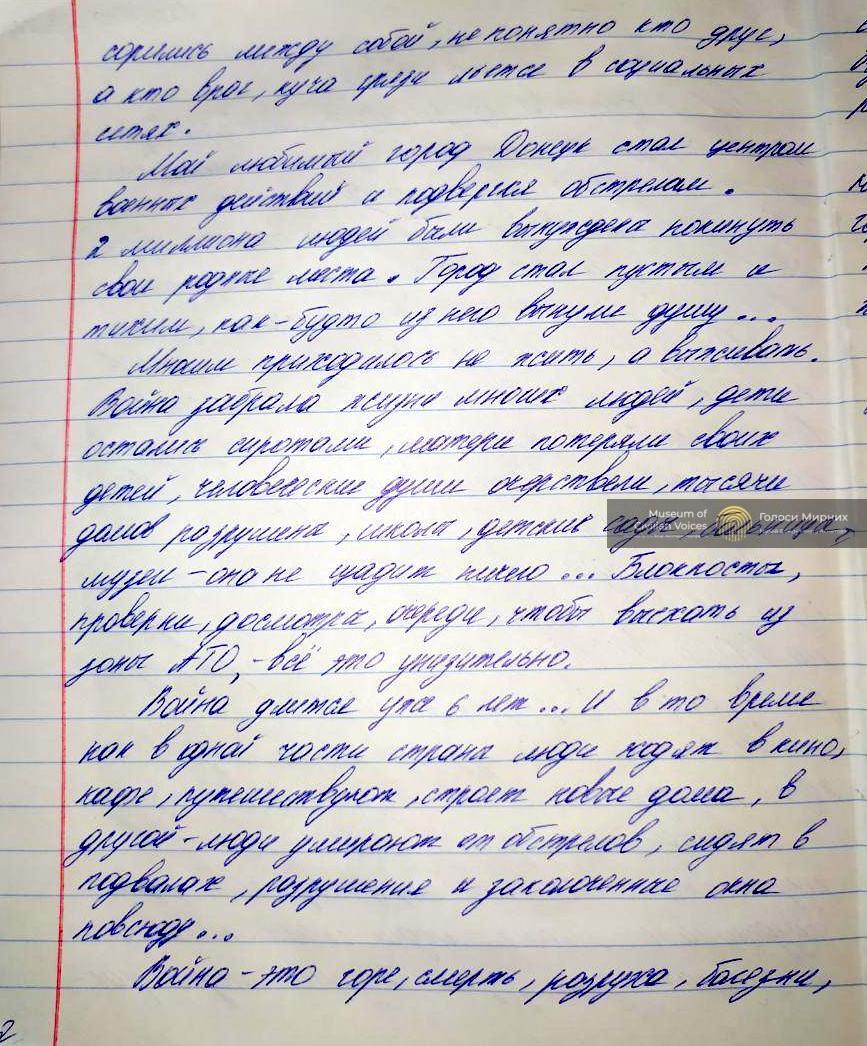 сорились между собой, не понятно кто друг,
а кто враг, куча грязи льется в социальных
сетях.
Мой любимый город Донецк стал центром
военных действий и подвергся обстрелам.
2 миллиона людей были вынуждена покинуть
свои родные места. Город стал пустым и
тихим, как-будто из него вынули душу...
Многим приходилось не жить, а выживать.
Война забрала жизни многих людей, дети
остались сиротами, матери потеряли своих
детей, человеческие души очерствели, тысячи
домов разрушены, школы, детские сады, больницы,
Museum of Civilian Voices
Голоси Мирних
музеи - она не щадит ничего... Блокпосты,
проверки, досмотры, очереди, чтобы выехать из
зоны АТО, - всё это унизительно.
Война длится уже 6 лет... И в то время
как в одной части страны люди ходят в кино,
кафе, путешествуют, строят новые дома, в
другой - люди умирают от обстрелов, сидят в
подвалах, разрушения и заколоченные окна
повсюду...
Война - это горе, смерть, разруха, болезни,
2